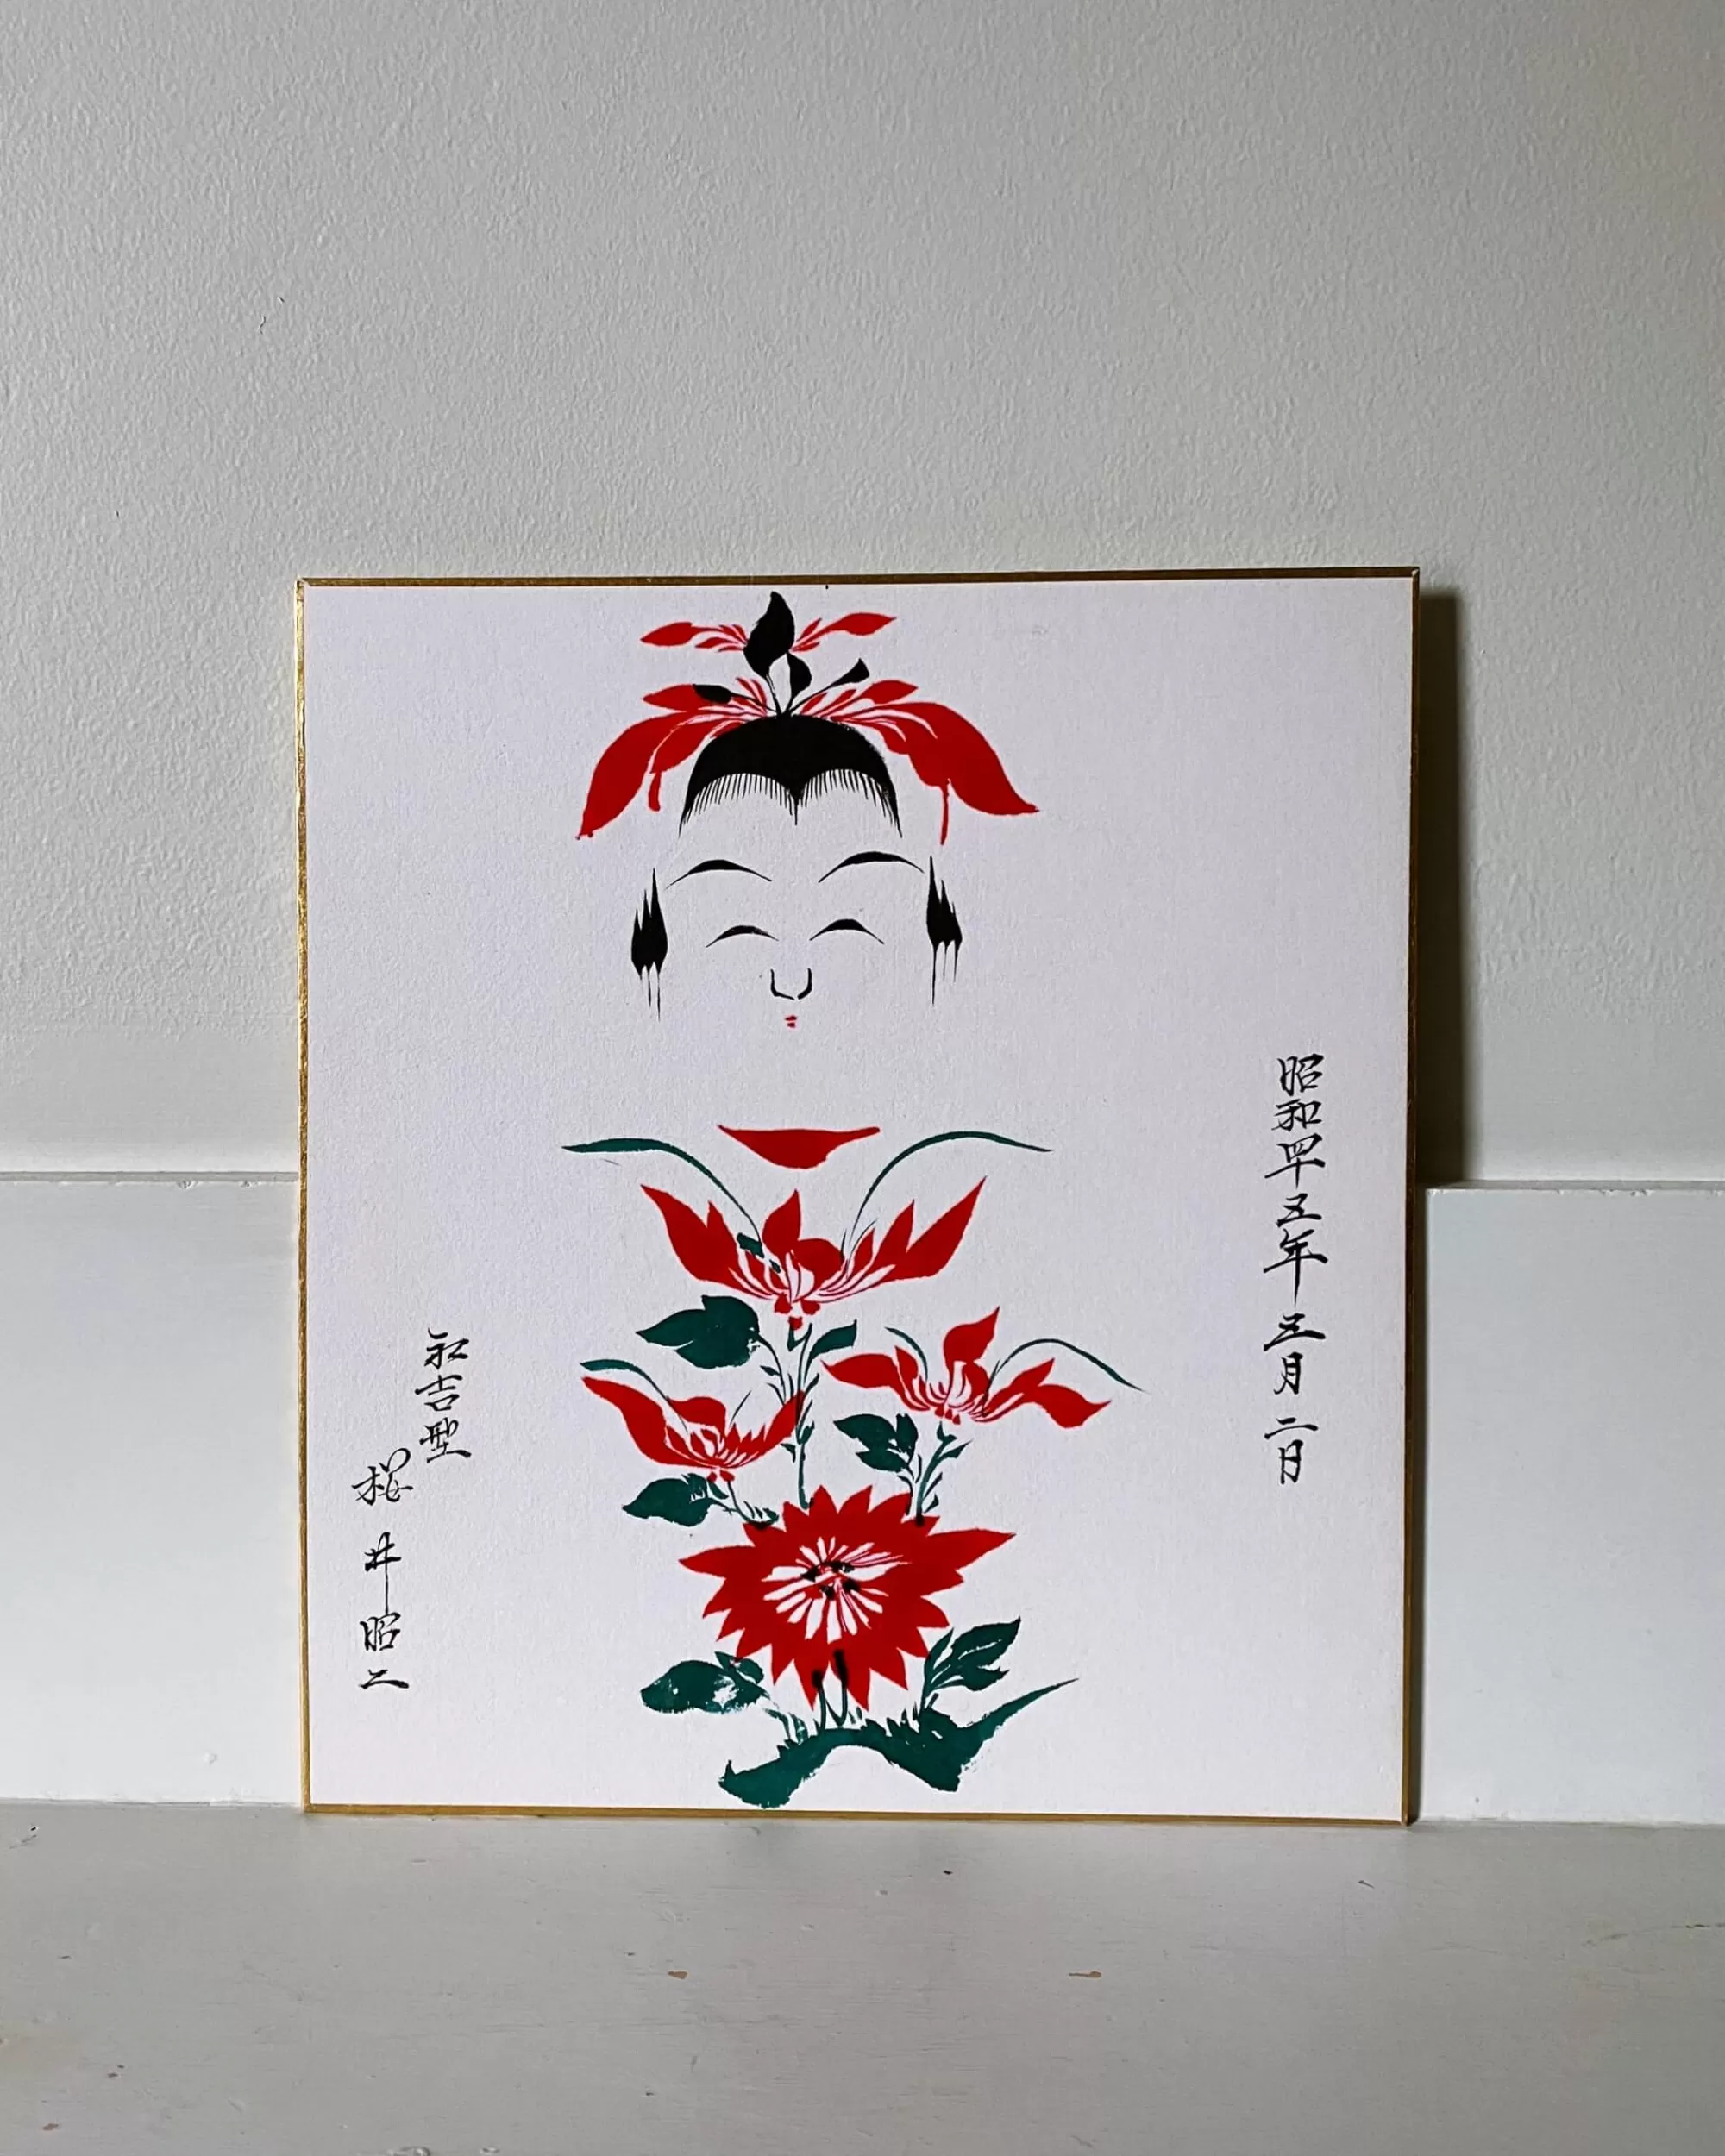 昭和四十五年三月二日
永吉型
桜井昭二